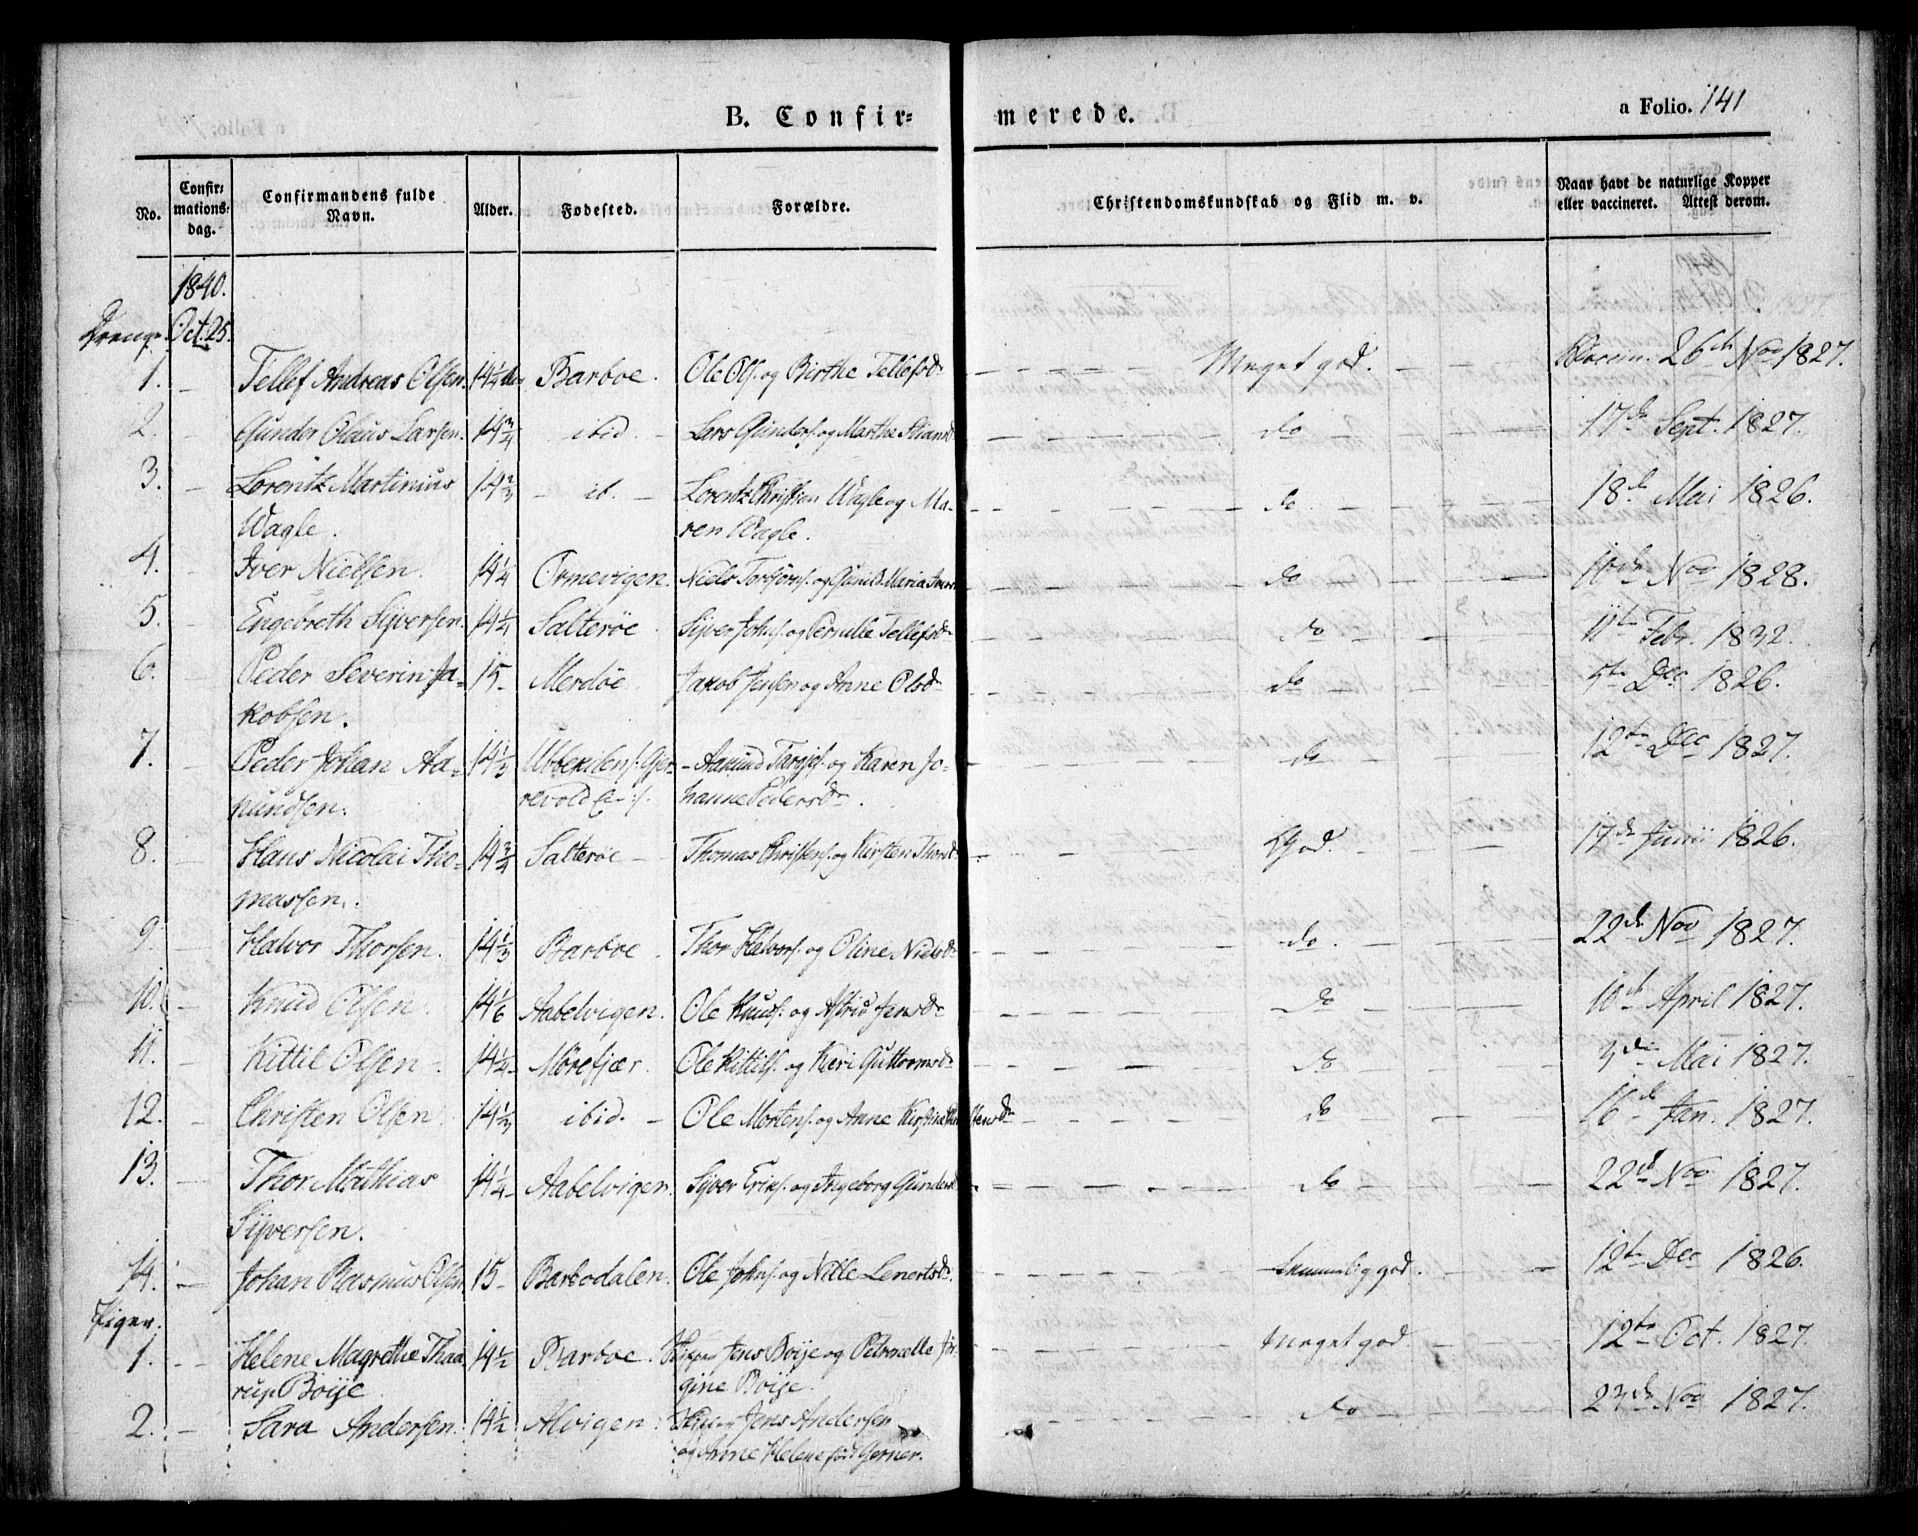 B. Confir= merede.
a Folio. 141
No.
Confir=
mations=
dag.
Confirmandens fulde
Navn.
Alder.
Fødested.
Forældre.
Christendomskundskab og Flid m. v.
Naar havt de naturlige Kopper
eller vaccineret. Attest derom.
1840.
Drenge. Oct. 25.
1. – Tellef Andreas Olsen. 14 1/4 Barboe. Ole Ols. og Birthe Tellefsdr – – – – Meget god. – – Vaccin. 26de Nov 1827.
2. Gunder Olaus Larsen. 14 3/4 ibid. – Lars Gunders. og Marthe – – – do – – 17de Sept. 1827.
3. – Lorentz Martinius 14 2/3 – ib. – Lorentz Christian Wagle og Ma- – – – do. – – 18de Mai 1826.
Wagle. ren Wagle.
4. Iver Nielsen. 14 1/4 Ormevigen. Niels og Gunild Maria – – – do – – 10de Nov 1828.
5. Engebreth Syversen. 14 1/4 Salterøe. Syver Johns. og Pernille Tellefsdr – – – do – – 11te Febr. 1832.
6. Peder Severin Ja- 15 – Merdøe. Jakob Jensen og Anne Olsdr – – – do – – 5te Dec 1826.
kobsen.
7. – Peder Johan Aa- 14 1/3 – Aanund Targjs. og Karen Jo- – – – do – – 12te Dec 1827.
nundsen. hanne Pedersdr.
8. – Hans Nicolai Tho- 14 3/4 Salterøe – Thomas Christens. og Kirsten Thorsdr – – – God. – – 17de Junii 1826.
massen.
9. – Halvor Thorsen. 14 1/3 Barboe. Thor Halvors. og Oline Nielsdr – – – do. – – 22de Nov 1827.
10. – Knud Olsen. 14 1/6 Aabelvigen. Ole Knuds. og Astrid Jensdr – – – do – – 10de April 1827.
11. – Kittil Olsen – 14 1/4 Mørefjær. Ole Kittils. og Kari Guttormsdr – – – do – – 3die Mai 1827.
12. – Christen Olsen 14 1/3 ibid. – Ole Mortens. og Anne Kirstine – – – do – – 16de Jan. 1827.
13. – Thor Mathias 14 1/4 Aabelvigen. Syver Eriks. og Ingeborg Gundersdr – – – do – – 22de Nov 1827.
Syversen.
14. – Johan Rasmus Olsen 15 – Barbodalen. Ole Johns. og Nille Lenertsdr. – – – Temmelig god. – – 12te Dec 1826.
Piger.
1. – Helene Magrethe Thaa- 14 1/2 Barboe. Skipper Jens Boije og Petronelle Jør- – – – meget god. – – 12te Oct. 1827.
rup Boije gine Boije.
2. – Sara Andersen. 14 1/2 Alvigen. Skipper Jens Andersen – – – do – – 23de Nov 1827.
og Anne Helene født Gerner.